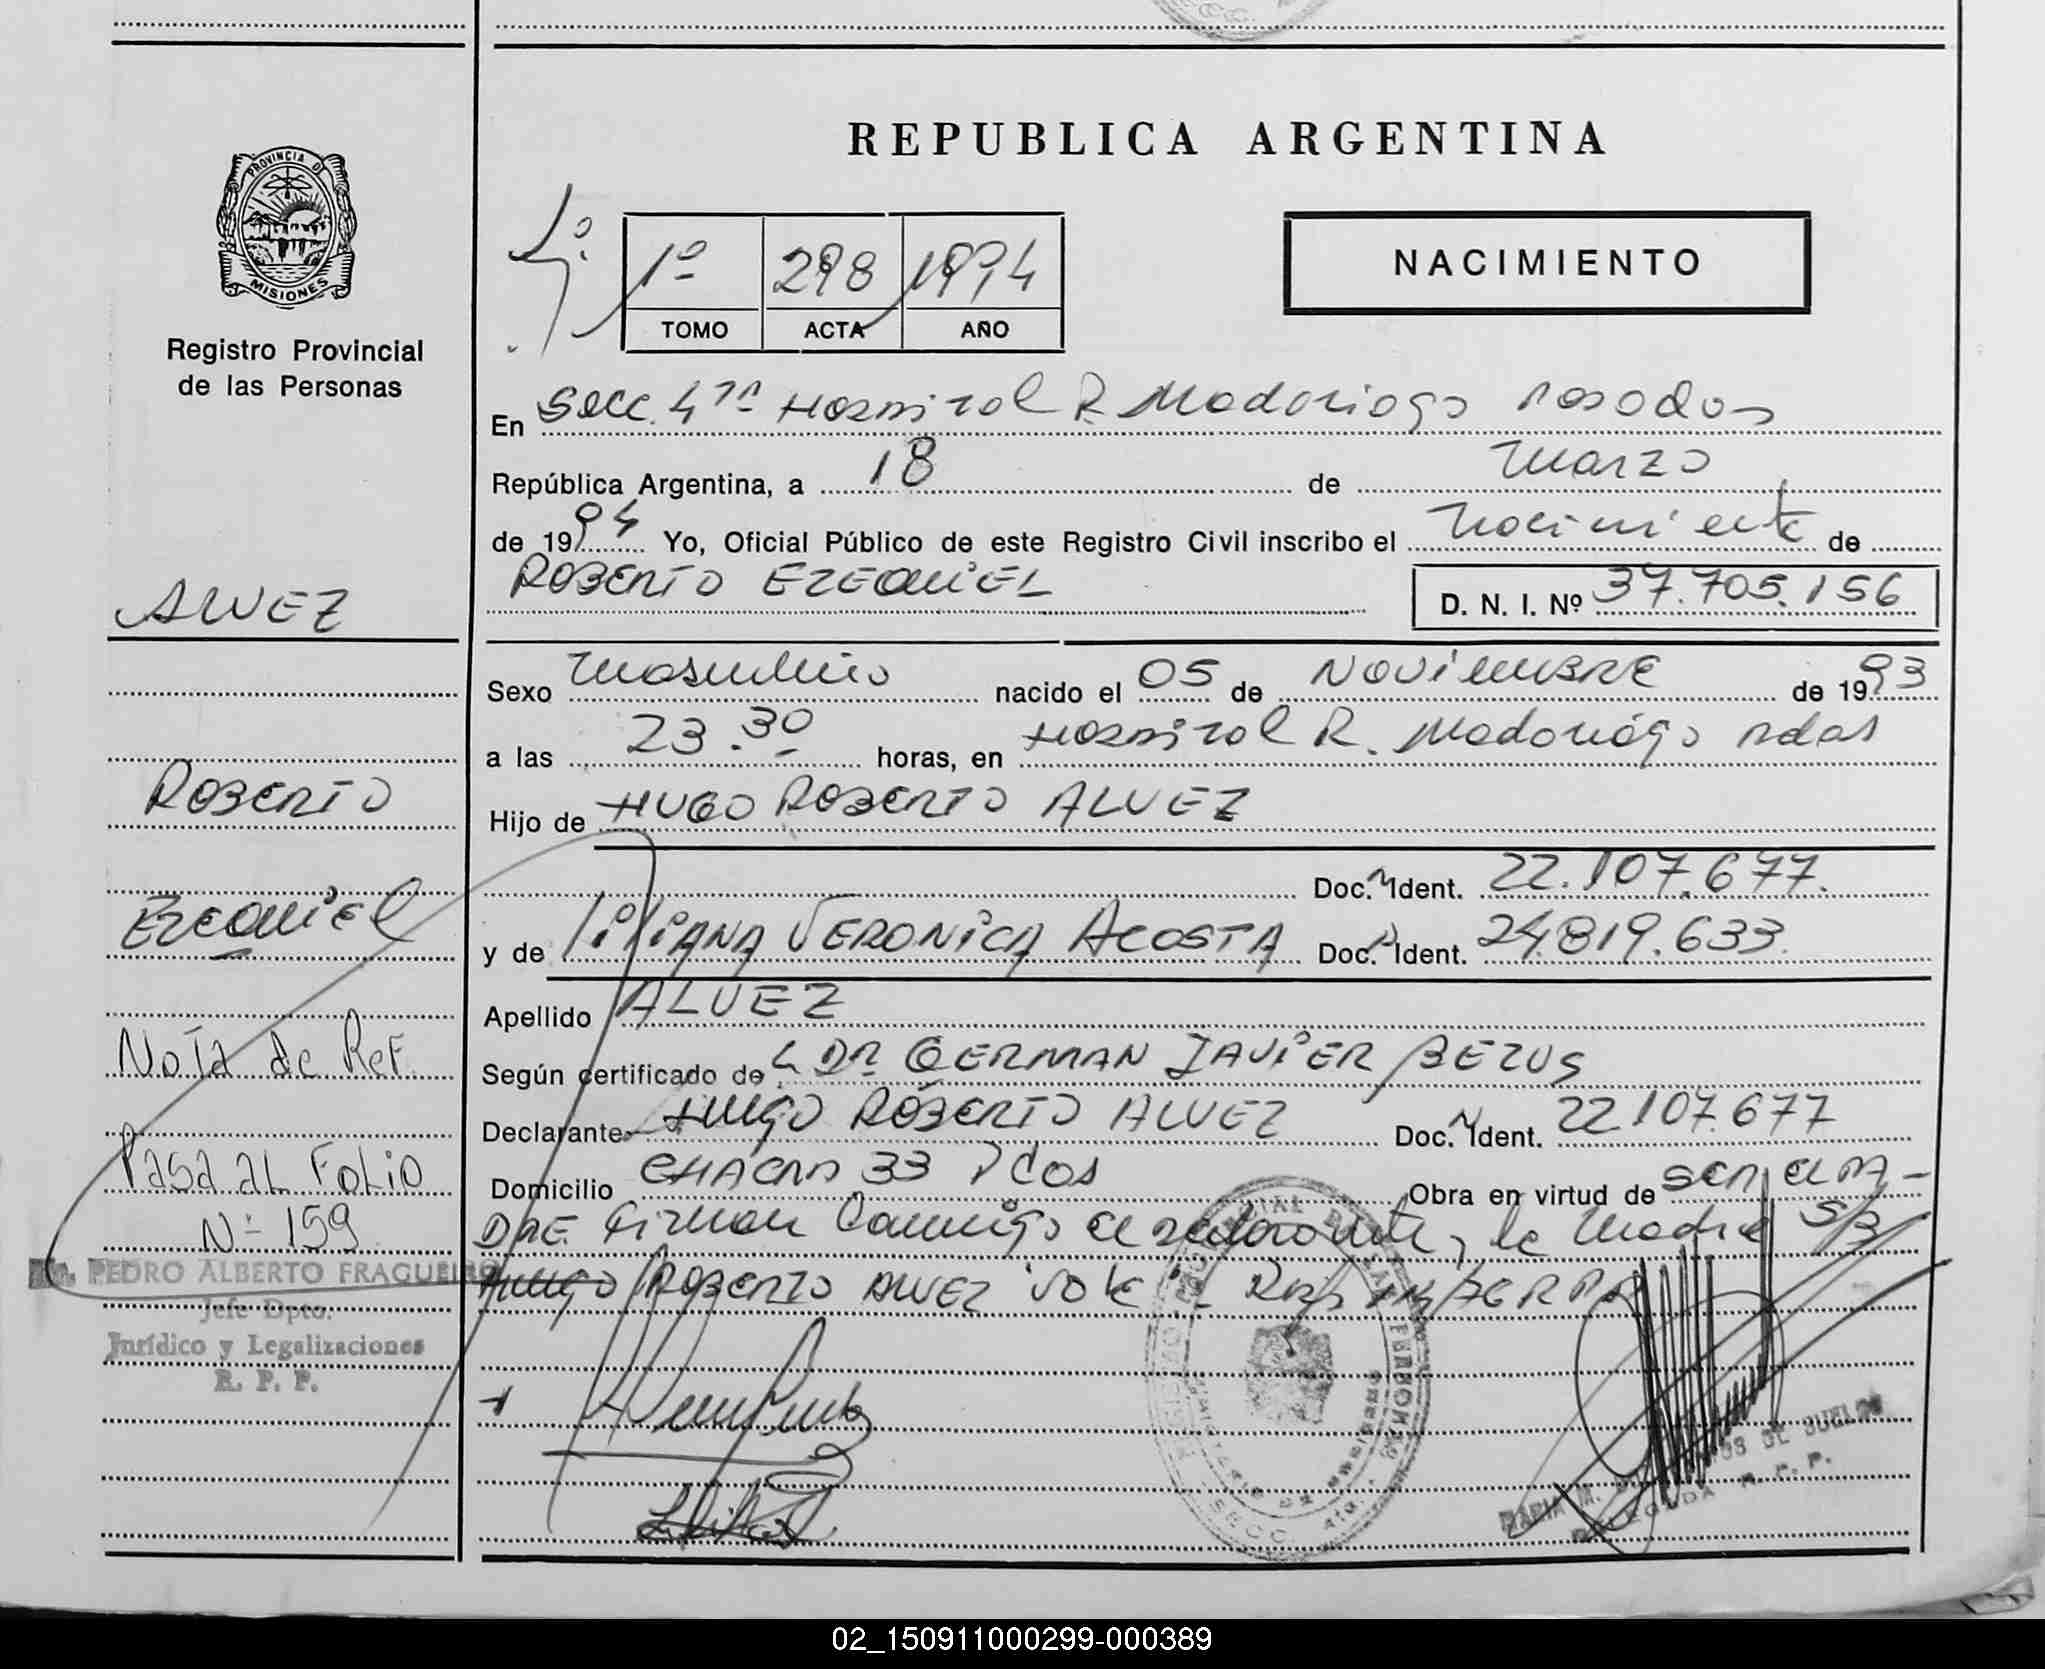 REPUBLICA ARGENTINA
PROVINCIA DE
MISIONES
Registro Provincial
de las Personas
1º 298 1994
TOMO ACTA AÑO
NACIMIENTO
En Secc. 4ta Hospital R. Madariaga Posadas
República Argentina, a 18 de Marzo
de 1994 Yo, Oficial Público de este Registro Civil inscribo el Nacimiento de
ROBERTO EZEQUIEL D. N. I. Nº 37.705.156
ALVEZ
Sexo Masculino nacido el 05 de NOVIEMBRE de 1993
a las 23.30 horas, en Hospital R. Madariaga Pdas
ROBERTO
Hijo de HUGO ROBERTO ALVEZ
Doc. Ident. 22.107.677.
EZEQUIEL
y de LILIANA VERONICA ACOSTA Doc. Ident. 24.819.633
Apellido ALVEZ
Nota de Ref.
Según certificado de DR. GERMAN JAVIER BEZUS
Declarante HUGO ROBERTO ALVEZ Doc. Ident. 22.107.677
Pasa al Folio
Nº 159
Domicilio CHACRA 33 Pdas Obra en virtud de ser el PA-
DRE. Firman Conmigo el declarante, la Madre S/R
HUGO ROBERTO ALVEZ Vale
PEDRO ALBERTO FRAGUEIRO
Jefe Dpto.
Jurídico y Legalizaciones
R. P. P.
02_150911000299-000389